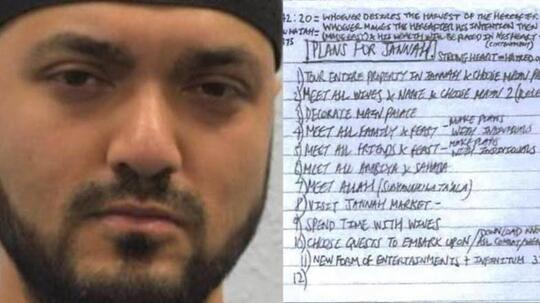 42:20 = WHOEVER DESIRES THE HARVEST OF THE HEREAFTER
WHOEVER MAKES THE HEREAFTER HIS INTENTION THEN
& HIS WEALTH WILL BE PLACED IN HIS HEART -
(CONTENTMENT)
[PLANS FOR JANNAH]
STRONG HEART = HATRED OF
1) TOUR ENTIRE PROPERTY IN JANNAH & CHOOSE MAIN
2) MEET ALL WIVES & NAME & CHOOSE MAIN 2
3) DECORATE MAIN PALACE
4) MEET ALL FAMILY & FEAST - MAKE PLANS WITH INDIVIDUALS
5) MEET ALL FRIENDS & FEAST - MAKE PLANS WITH INDIVIDUALS
6) MEET ALL ANBIYA & SAHABA
7) MEET ALLAH (SUBHANAHU WA TA'ALA)
8) VISIT JANNAH MARKET -
9) SPEND TIME WITH WIVES
10) CHOOSE QUESTS TO EMBARK UPON / DOWNLOAD
11) NEW FORM OF ENTERTAINMENTS + INFINITUM
12)